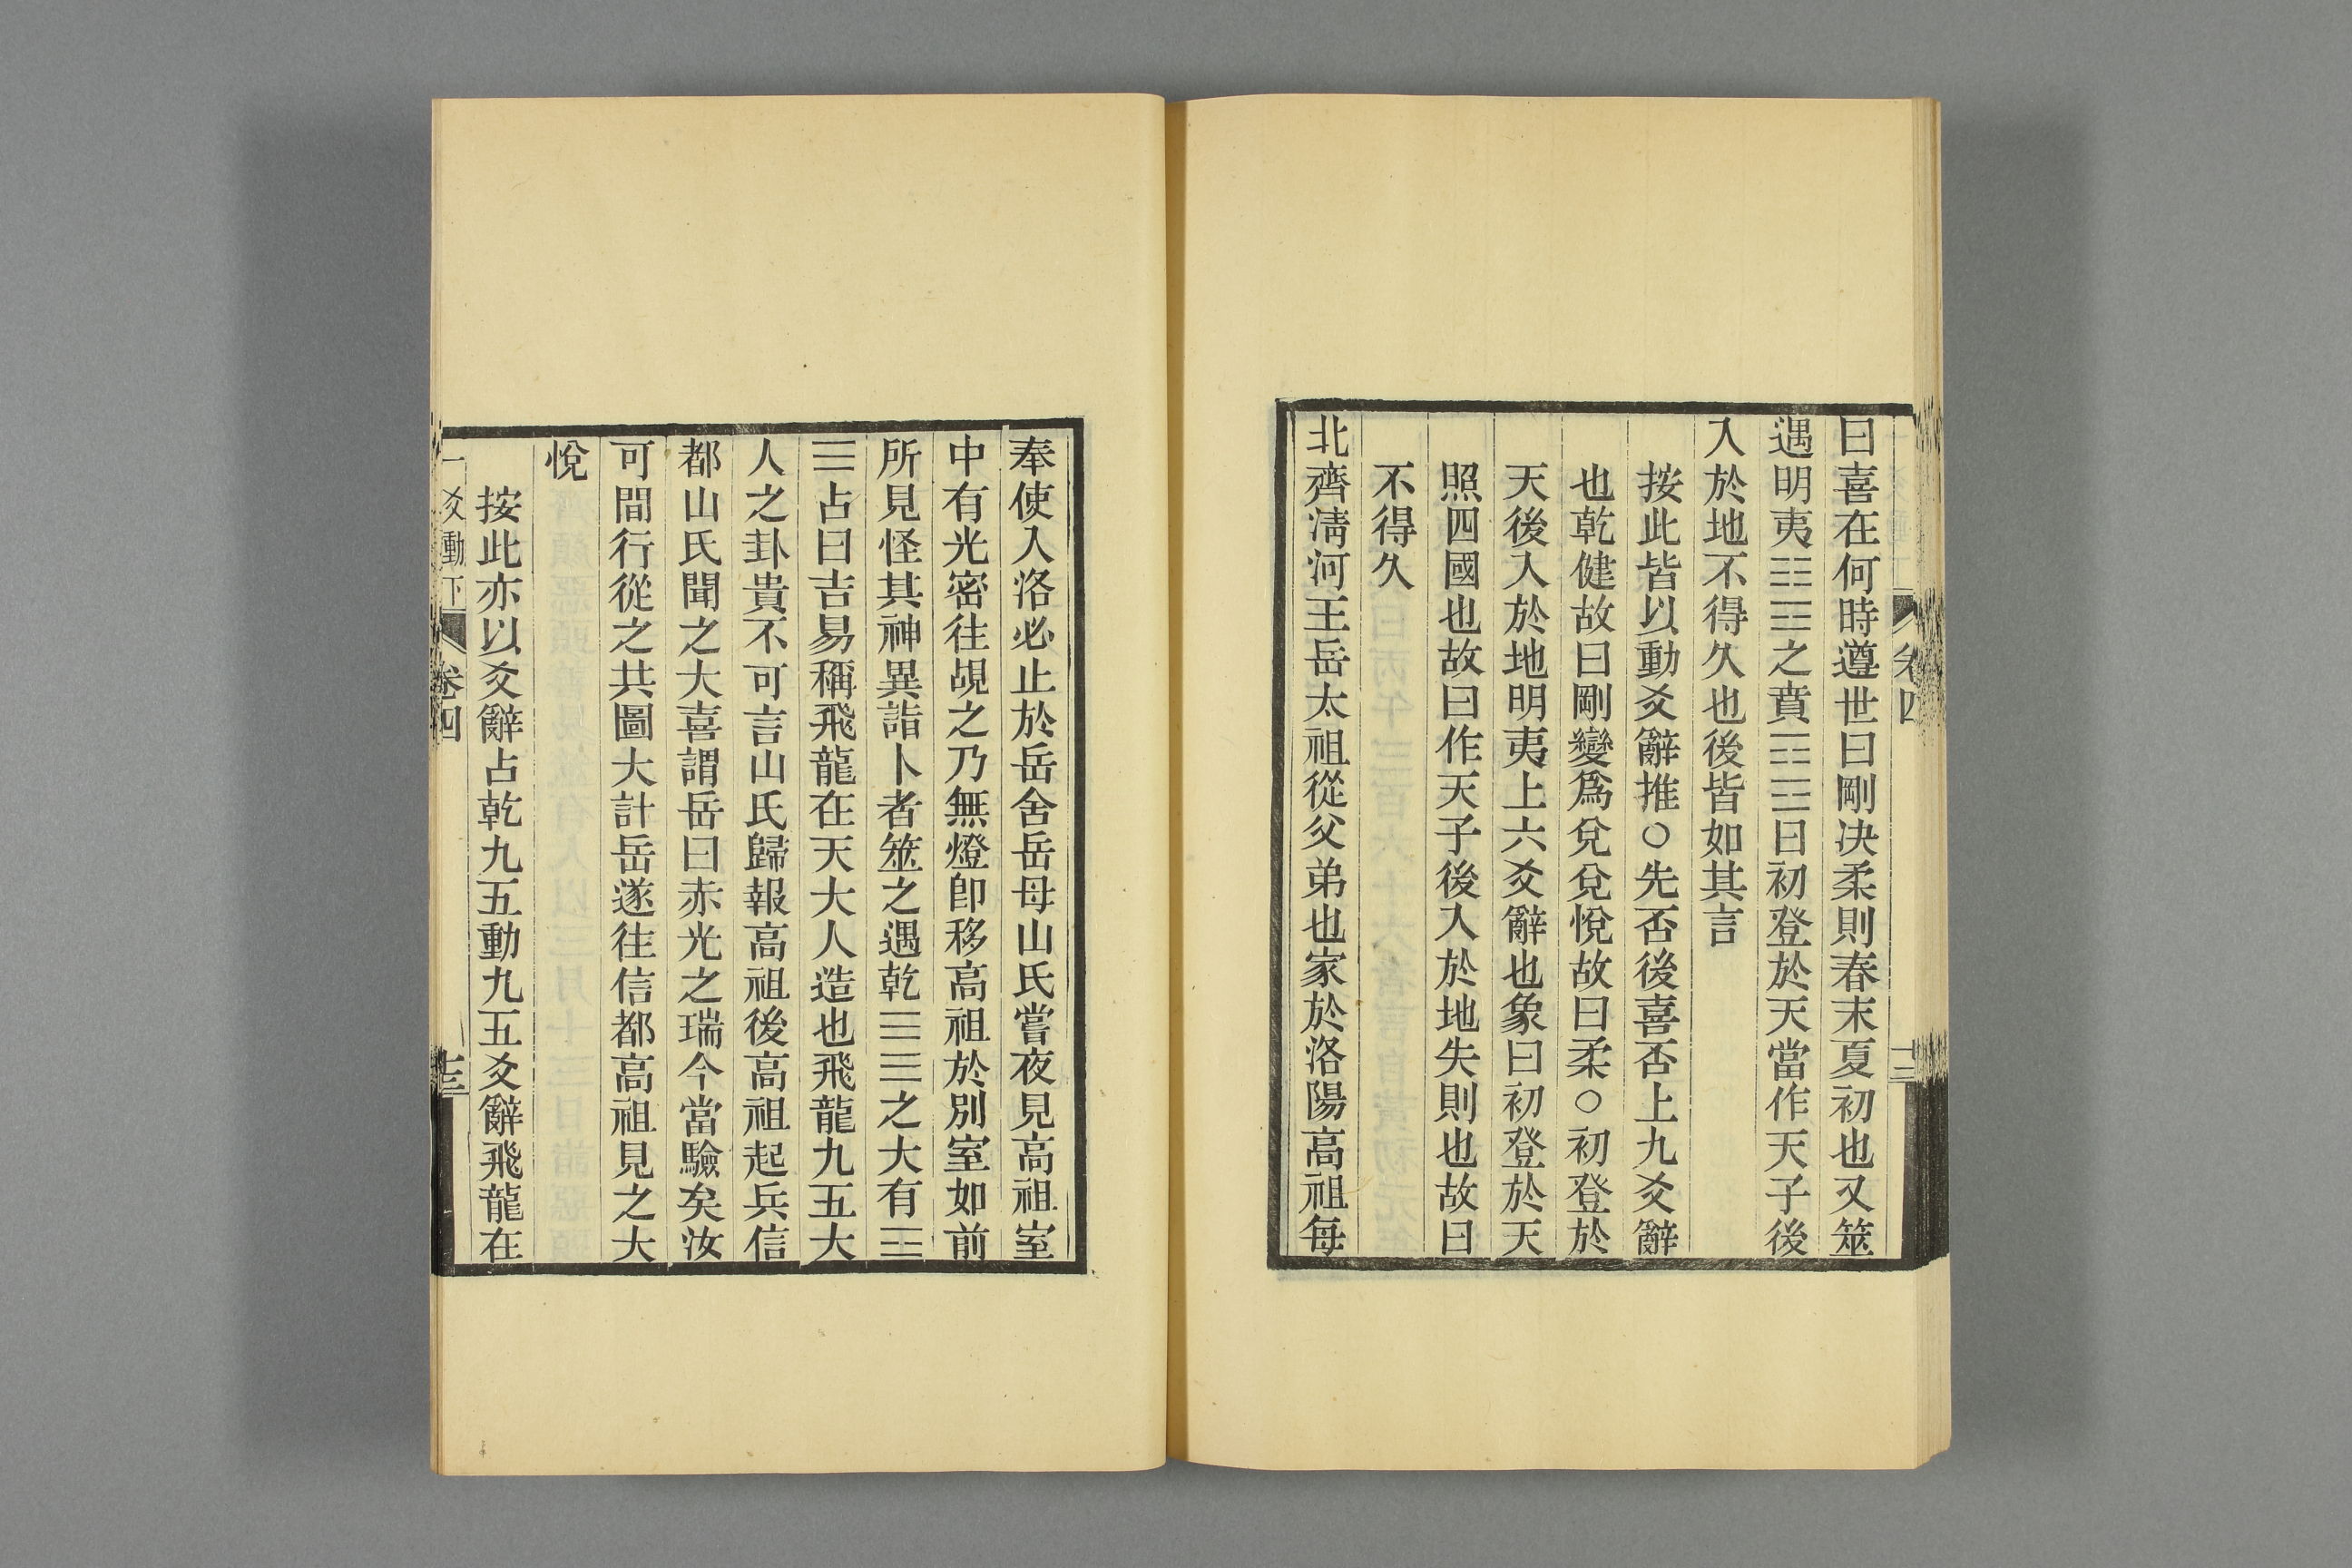 曰喜在何時遵世曰剛決柔則春末夏初也又筮
遇明夷䷣之賁䷕曰初登於天當作天子後
入於地不得久也後皆如其言
按此皆以動爻辭推○先否後喜否上九爻辭
也乾健故曰剛變爲兌兌悅故曰柔○初登於
天後入於地明夷上六爻辭也象曰初登於天
照四國也故曰作天子後入於地失則也故曰
不得久
北齊清河王岳太祖從父弟也家於洛陽高祖每
卷四
奉使入洛必止於岳舍岳母山氏嘗夜見高祖室
中有光密往覘之乃無燈卽移高祖於別室如前
所見怪其神異詣卜者筮之遇乾☰☰之大有☲
☰占曰吉易稱飛龍在天大人造也飛龍九五大
人之卦貴不可言山氏歸報高祖後高祖起兵信
都山氏聞之大喜謂岳曰赤光之瑞今當驗矣汝
可間行從之共圖大計岳遂往信都高祖見之大
悅
按此亦以爻辭占乾九五動九五爻辭飛龍在
一爻動下
卷四